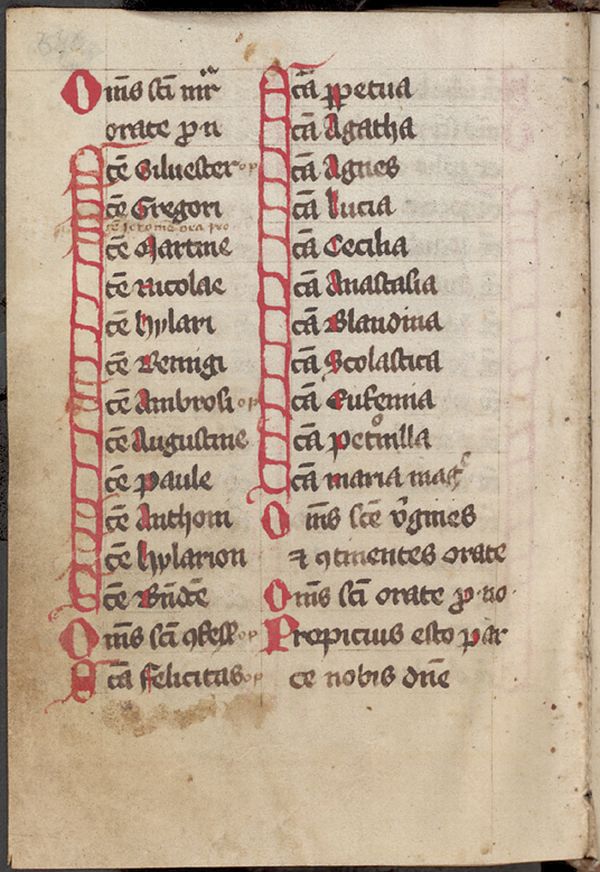 Om̄s sc̄i mr̄
orate p̱ n
Sc̄e Siluester op
Sc̄e Gregori
sc̄e Ieronime ora pro
Sc̄e Martine
Sc̄e Nicolae
Sc̄e hylari
Sc̄e Benigi
Sc̄e Ambrosi op
Sc̄e Augustine
Sc̄e paule
Sc̄e Anthoni
Sc̄e hylarion
Sc̄e Bn̄dc̄e
Om̄s sc̄i ꝯfess̄ op
Sc̄a felicitas op
Sc̄a ꝑpetua
Sc̄a Agatha
Sc̄a Agnes
Sc̄a lucia
Sc̄a Cecilia
Sc̄a Anastasia
Sc̄a Blandina
Sc̄a Scolastica
Sc̄a Eufemia
Sc̄a petͦnilla
Sc̄a maria mag
Om̄s sc̄e v̓gines
⁊ ꝯtinentes orate
Om̄s sc̄i orate p̱ no
Propicius esto par
ce nobis dn̄e